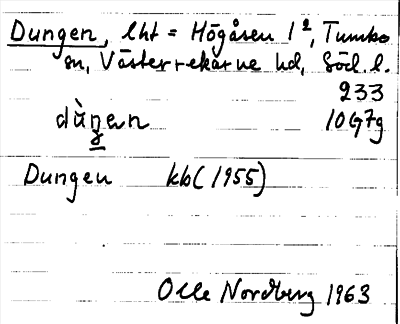 Dungen, lht = Högåsen 1², Tumbo
sn, Västerrekarne hd, Söd l.
233
dùŋan 10G7g
Dungen kb (1955)
Olle Nordberg 1963